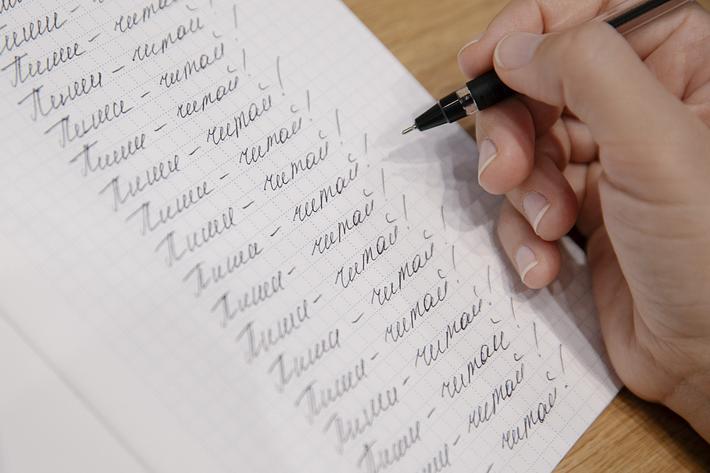 Пиши – читай!
Пиши – читай!
Пиши – читай!
Пиши – читай!
Пиши – читай!
Пиши – читай!
Пиши – читай!
Пиши – читай!
Пиши – читай!
Пиши – читай!
Пиши – читай!
Пиши – читай!
Пиши – читай!
Пиши – читай!
– читай!
читай!